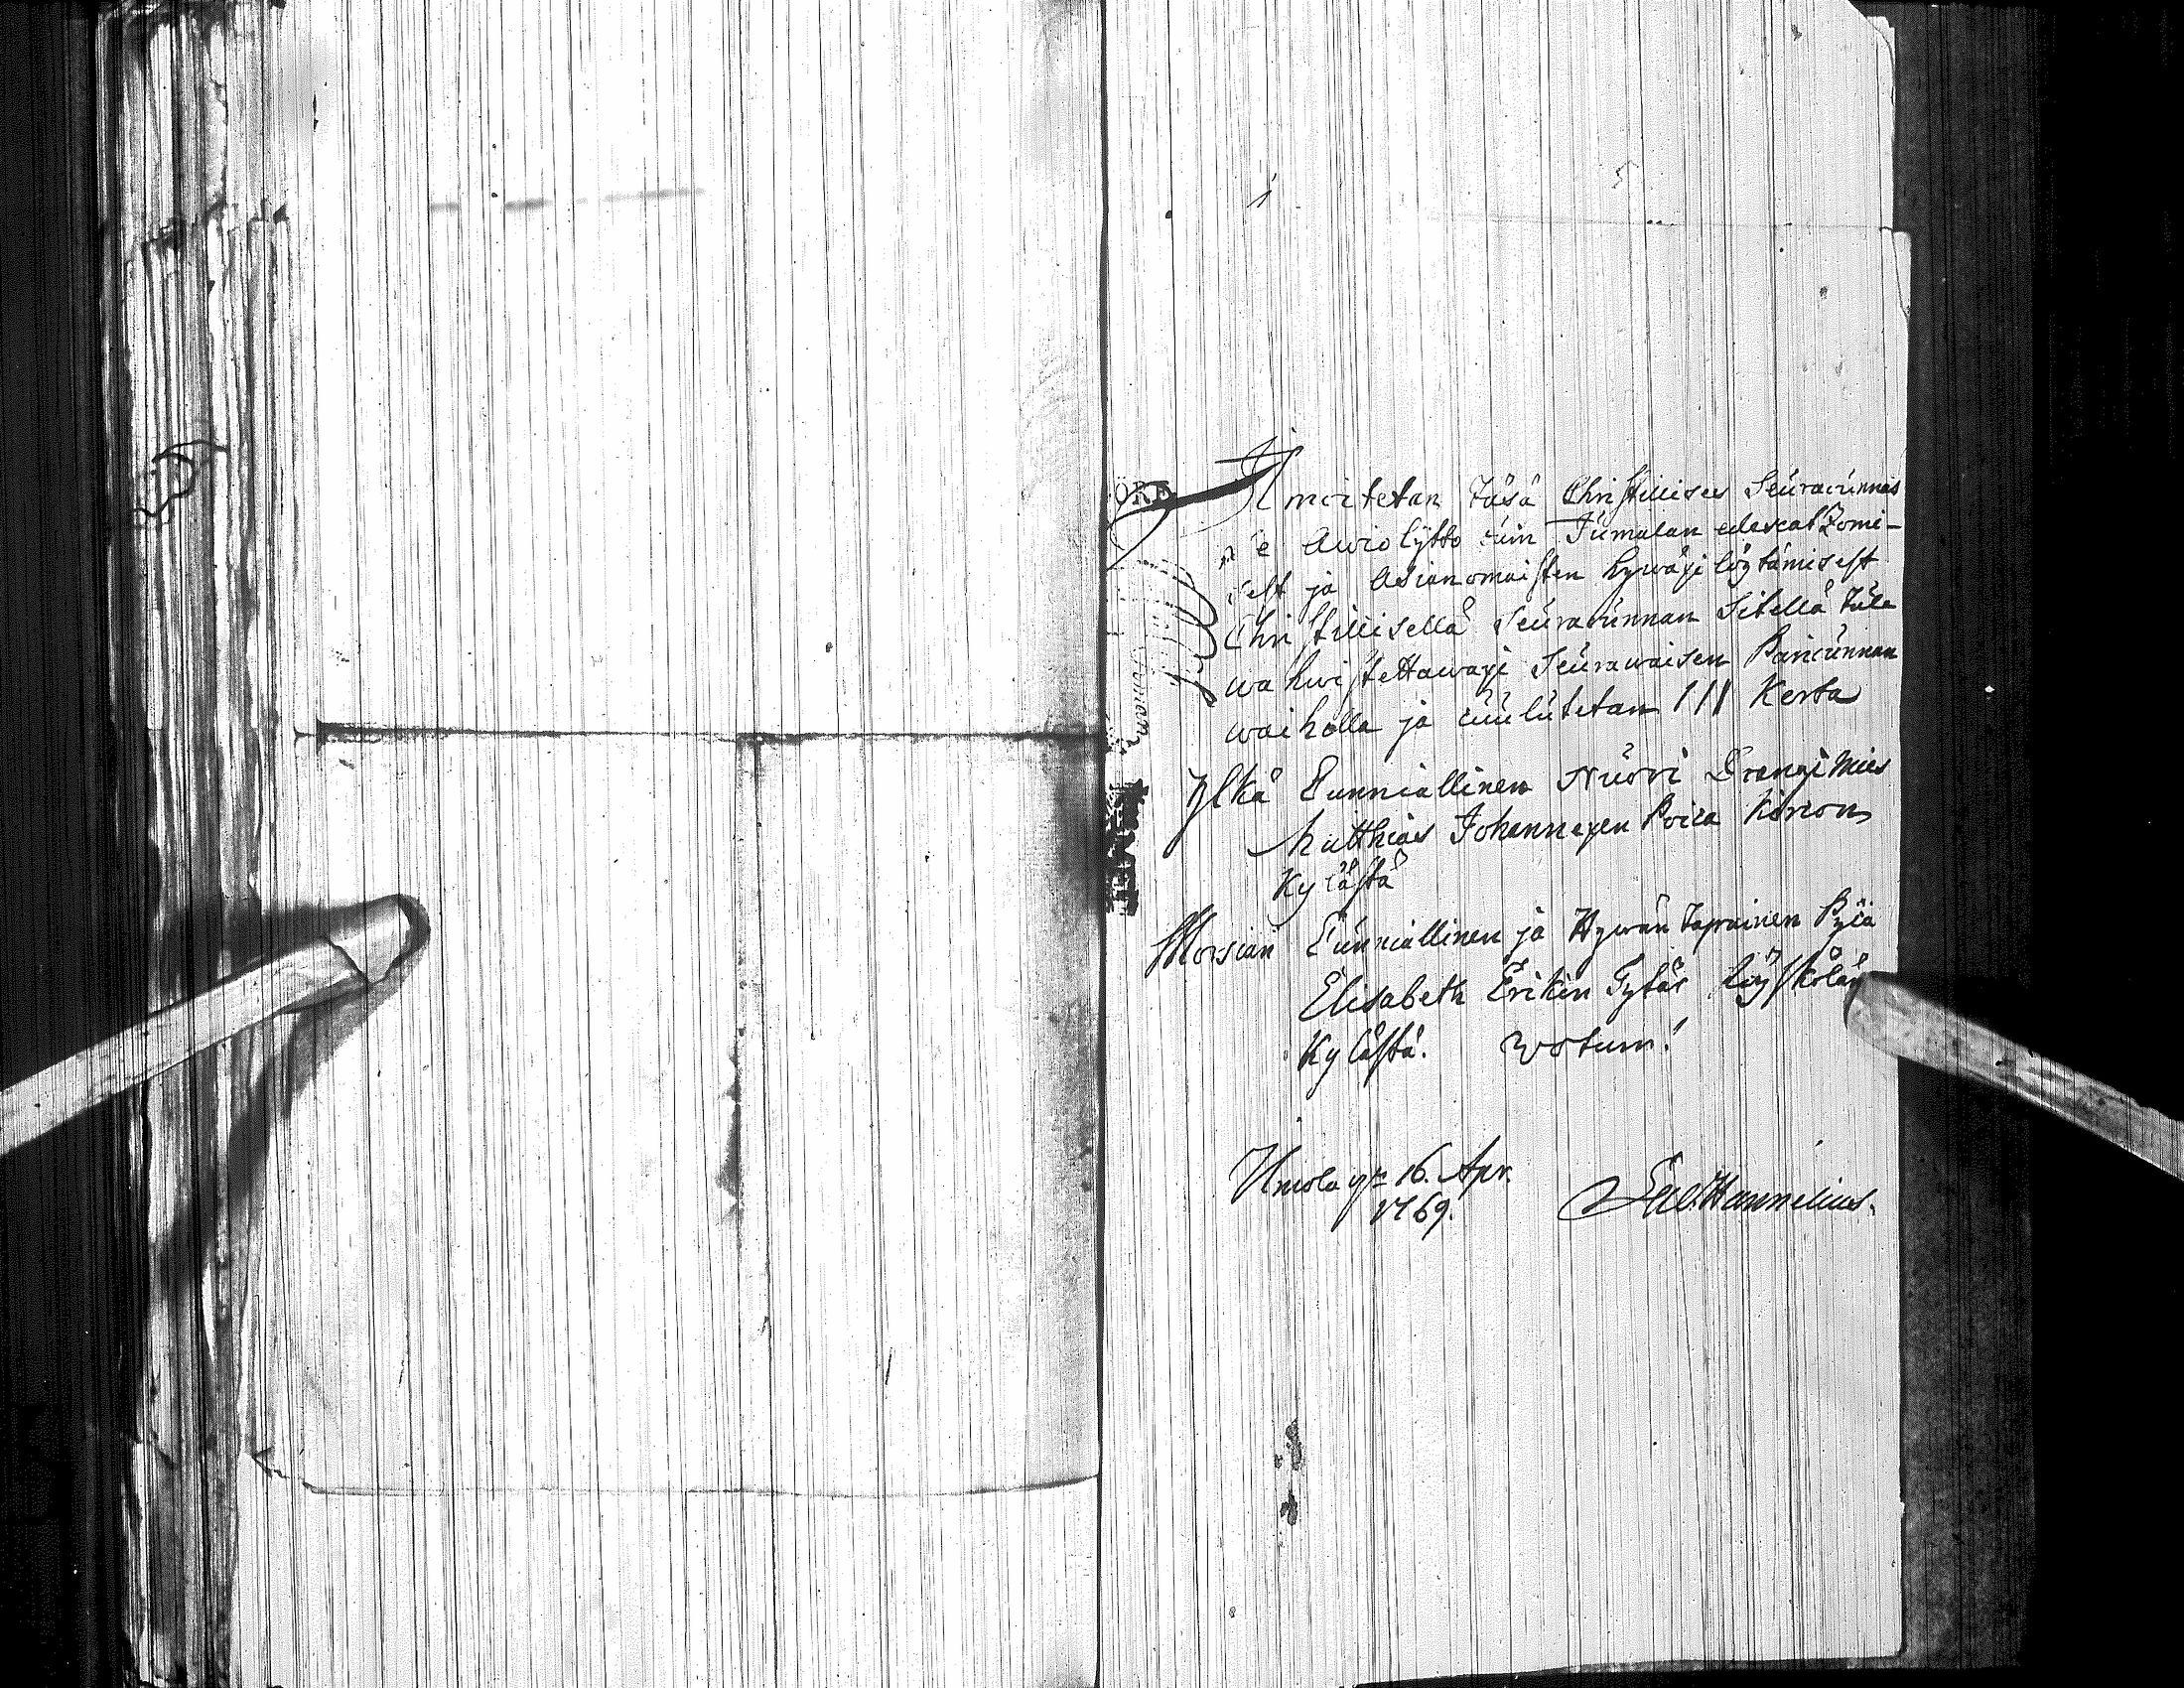 1
5
ÖRE
Ilmoitetan täsä Christillises Seuracunnas
se Awiolijtto cuin Jumalan edescatzomi-
sest ja Asianomaisten hywäxi löytämisest
Christillisellä Seuracunnan Sitellä tule
wahwistettawaxi Seurawaisen Pariacunnan
waiholla ja cuulutetan III Kerta
Ylkä Cunniallinen Nuori Drengi Mies
Matthias Johannexen Poica
Kylästä
Morsian Cunniallinen ja Hywän tapainen Pyca
Elisabeth Erikin Tytär Löyskölän
Kylästä. Votum!
Uniola 16. Apr.
1769. Hannelius.